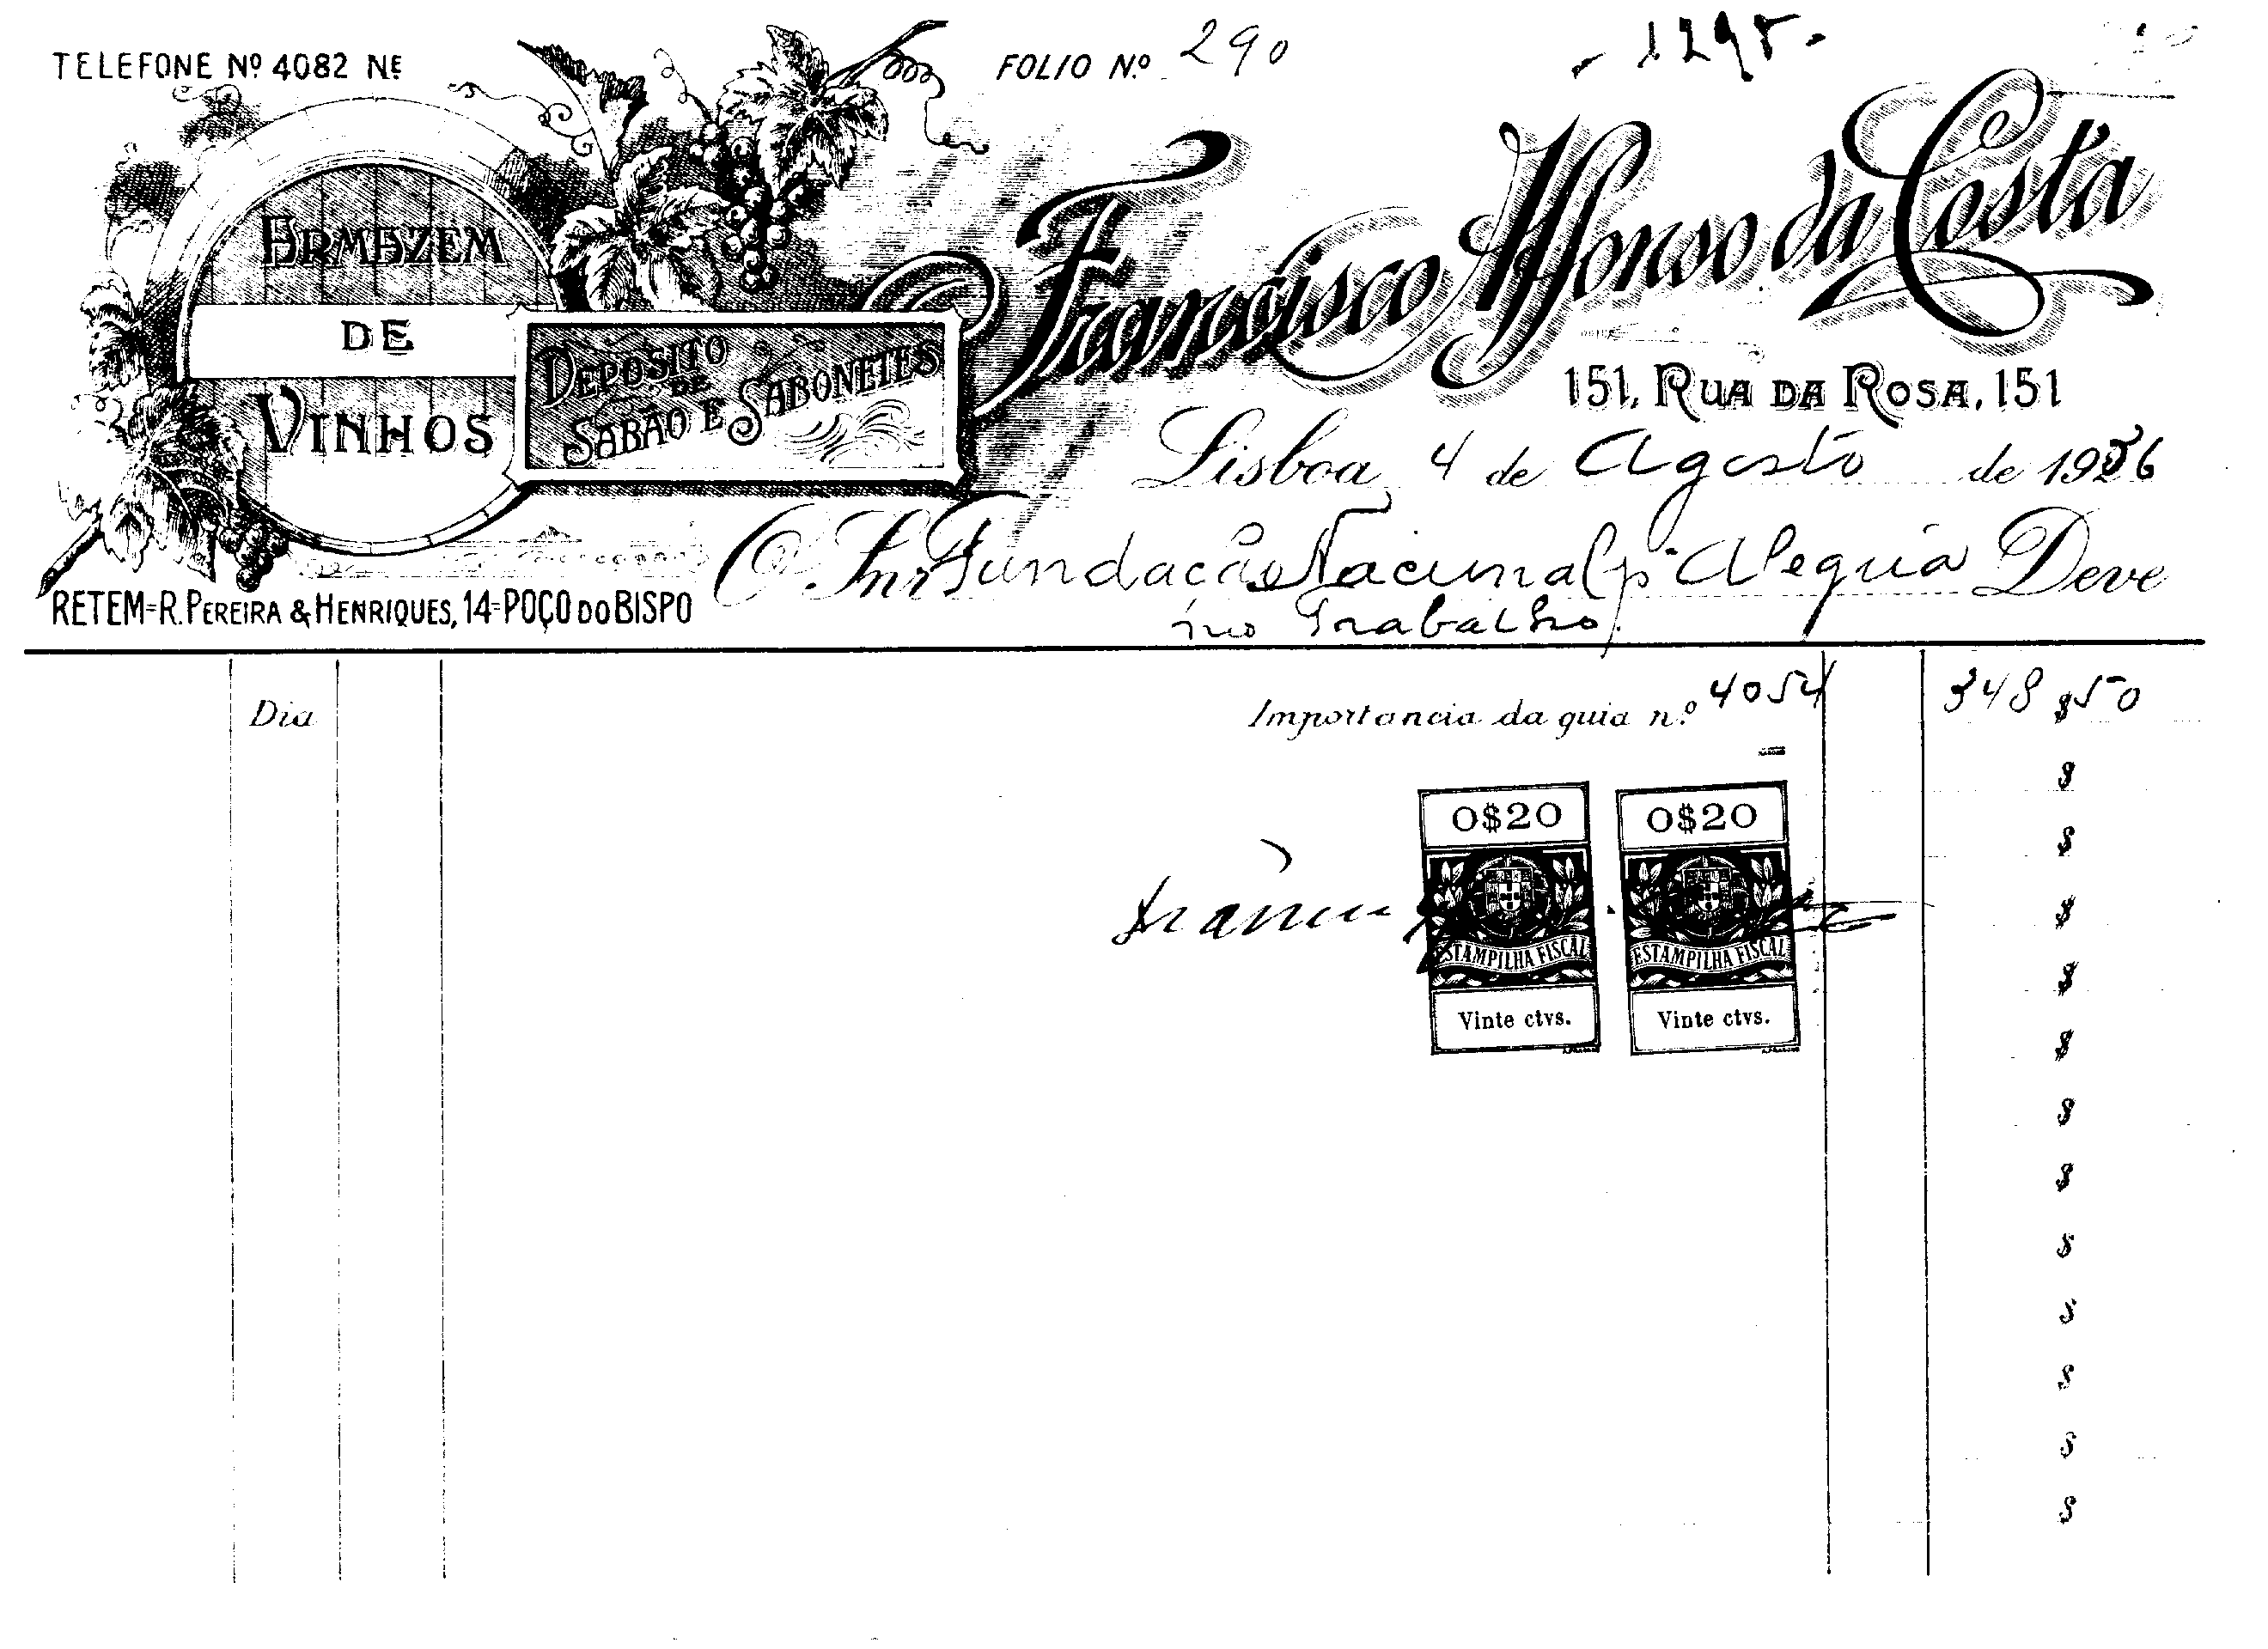 TELEFONE Nº 4082 NE
FOLIO N.º 290
- 1295 -
ARMAZEM
DE
VINHOS
DEPOSITO
DE
SABÃO E SABONETES
Francisco Affonso da Costa
151, RUA DA ROSA, 151
Lisboa 4 de Agosto de 1936
O Snr Fundação Nacional pª Alegria Deve
no Trabalho.
RETEM=R. PEREIRA & HENRIQUES, 14=POÇO DO BISPO
Dia
Importancia da guia n.º 4054 348$50
$
0$20 0$20
$
$
ESTAMPILHA FISCAL ESTAMPILHA FISCAL
$
Vinte ctvs. Vinte ctvs.
$
$
$
$
$
$
$
$